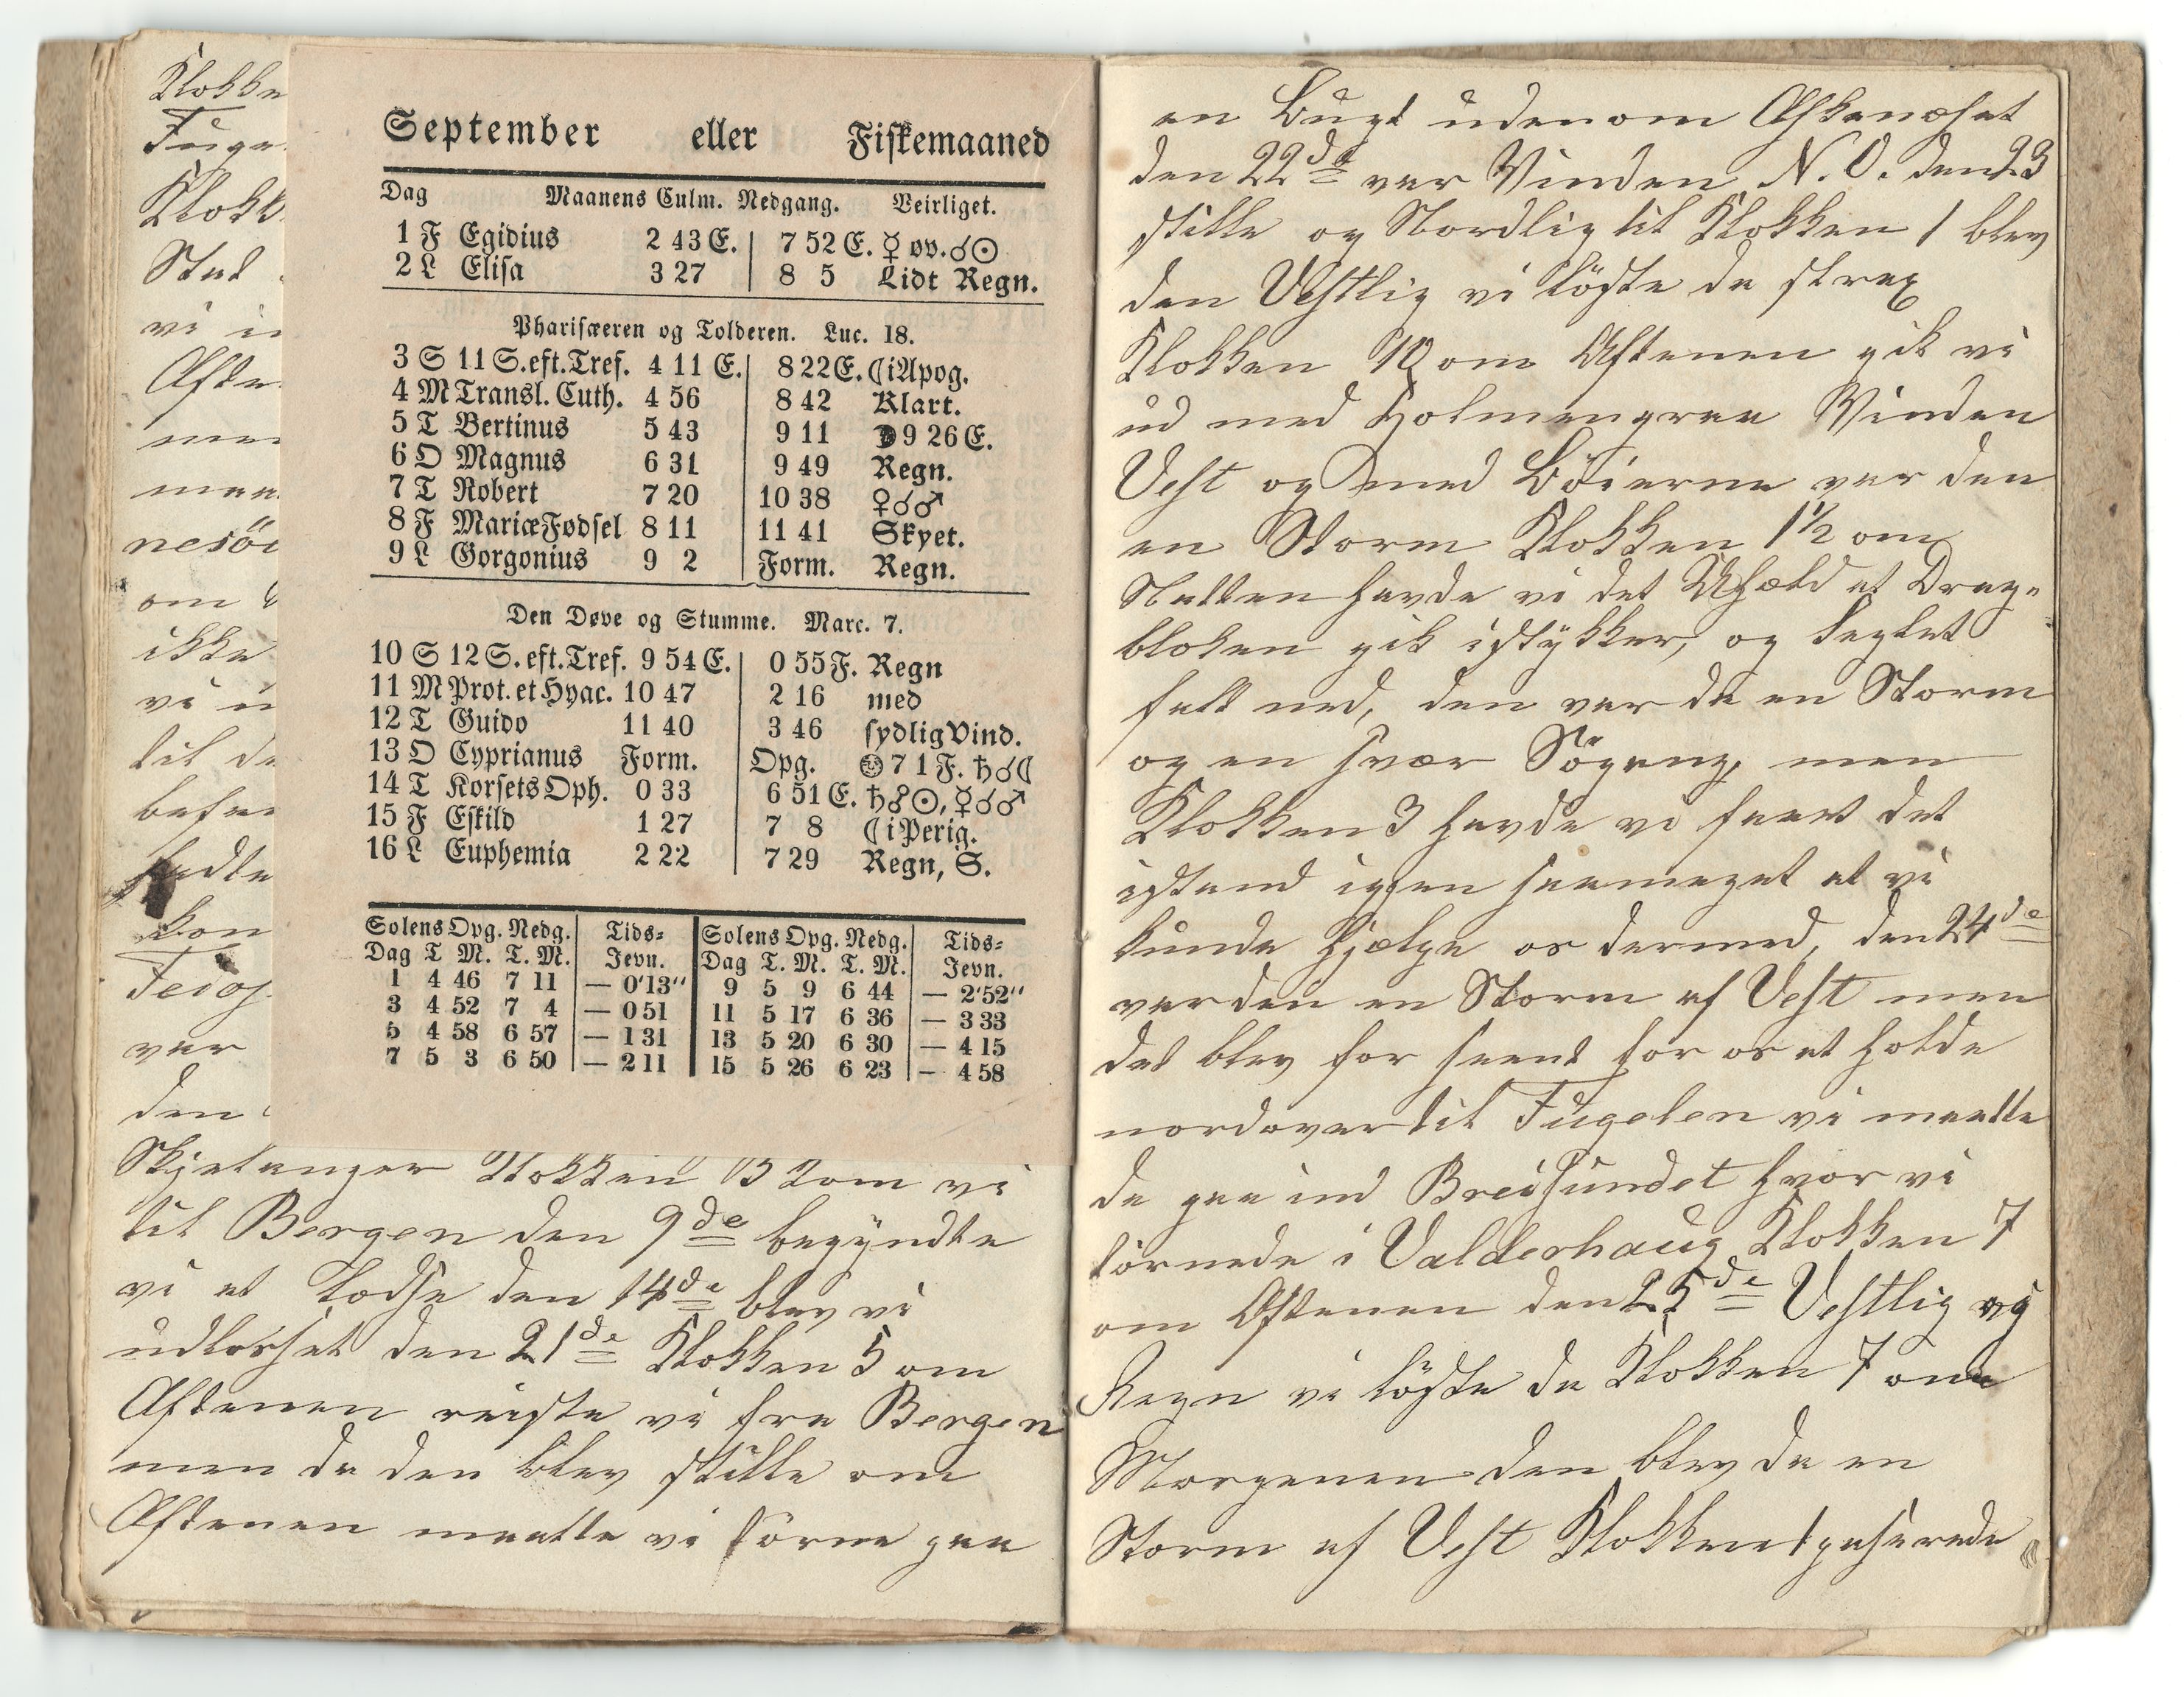 Klokke
Fuge
Klokk
Stad
vi i
Afte
men
maa
nesöe
om
ikke
vi i
til de
befa
hadte
kom
Feioj
var
den
September eller Fiskemaaned
Dag Maanens Culm. Nedgang. Veirliget.
1 F Egidius 2 43 E. 7 52 E. ☿ øv. ☌ ☉
2 L Elisa 3 27 8 5 Lidt Regn.
Pharisæeren og Tolderen. Luc. 18.
3 S 11 S. eft. Tref. 4 11 E. 8 22 E. ☾ i Apog.
4 M Transl. Cuth. 4 56 8 42 Klart.
5 T Bertinus 5 43 9 11 ☽ 9 26 E.
6 O Magnus 6 31 9 49 Regn.
7 T Robert 7 20 10 38 ♀ ☌ ♂
8 F Mariæ Fødsel 8 11 11 41 Skyet.
9 L Gorgonius 9 2 Form. Regn.
Den Døve og Stumme. Marc. 7.
10 S 12 S. eft. Tref. 9 54 E. 0 55 F. Regn
11 M Prot. et Hyac. 10 47 2 16 med
12 T Guido 11 40 3 46 sydlig Vind.
13 O Cyprianus Form. Opg. 🌝 7 1 F. ♄ ☌ ☾
14 T Korsets Oph. 0 33 6 51 E. ♄ ☍ ☉, ☿ ☌ ♂
15 F Eskild 1 27 7 8 ☾ i Perig.
16 L Euphemia 2 22 7 29 Regn, S.
Solens Opg. Nedg. Tids= Solens Opg. Nedg. Tids=
Dag T. M. T. M. Jevn. Dag T. M. T. M. Jevn.
1 4 46 7 11 — 0'13'' 9 5 9 6 44 — 2'52''
3 4 52 7 4 — 0 51 11 5 17 6 36 — 3 33
5 4 58 6 57 — 1 31 13 5 20 6 30 — 4 15
7 5 3 6 50 — 2 11 15 5 26 6 23 — 4 58
Skjelanger Klokken 3 kom vi
til Bergen den 9de begyndte
vi at Lodse den 14de blev vi
udlosset den 21de Klokken 5 om
Aftenen reiste vi fra Bergen
men da den blev stille om
Aftenen maatte vi törne paa
en Bugt udenom Askenæset
den 22de var Vinden N.O. den 23
stille og Nordlig til Klokken 1 blev
den Vestlig vi lögte da strax
Klokken 10 om Aftenen gik vi
ud med Holmengraa Vinden
Vest og med Böierne var den
en Storm Klokken 1½ om
Natten havde vi det Uhæld at Drag=
bloken gik istykker, og Seglet
falt ned, den var da en Storm
og en svær Sögang, men
Klokken 3 havde vi faaet det
istand igjen saameget at vi
kunde hjælpe os dermed, den 24de
var den en Storm af Vest men
det blev for seent for os at holde
nordover til Fugelen vi maatte
da gaa ind Breisundet hvor vi
törnede i Valderhaug Klokken 7
om Aftenen den 25de Vestlig og
Regn vi lögte da Klokken 7 om
Morgenen den blev da en
Storm af Vest Klokken 1 paserede